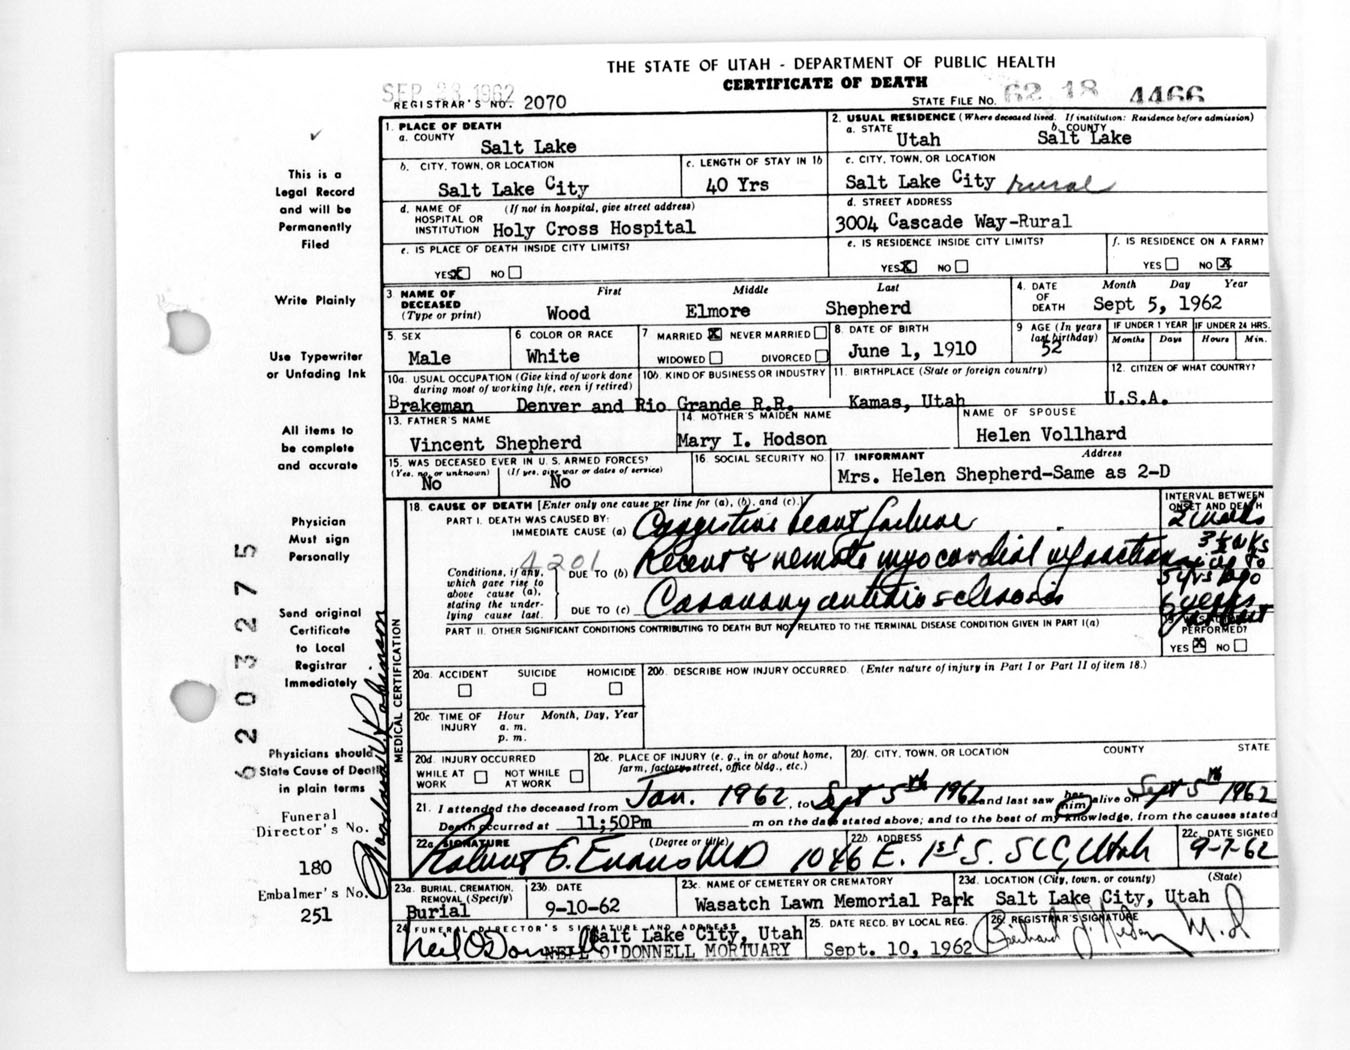 THE STATE OF UTAH - DEPARTMENT OF PUBLIC HEALTH
CERTIFICATE OF DEATH
SEP 28 1962
REGISTRAR'S NO. 2070
STATE FILE NO. 62 18 4466
This is a
Legal Record
and will be
Permanently
Filed
Write Plainly
Use Typewriter
or Unfading Ink
All items to
be complete
and accurate
Physician
Must sign
Personally
Send original
Certificate
to Local
Registrar
Immediately
Physicians should
State Cause of Death
in plain terms
Funeral
Director's No.
180
Embalmer's No.
251
1. PLACE OF DEATH
a. COUNTY
Salt Lake
2. USUAL RESIDENCE (Where deceased lived. If institution: Residence before admission)
a. STATE b. COUNTY
Utah Salt Lake
b. CITY, TOWN, OR LOCATION
Salt Lake City
c. LENGTH OF STAY IN 1b
40 Yrs
c. CITY, TOWN, OR LOCATION
Salt Lake City rural
d. NAME OF (If not in hospital, give street address)
HOSPITAL OR
INSTITUTION Holy Cross Hospital
d. STREET ADDRESS
3004 Cascade Way-Rural
e. IS PLACE OF DEATH INSIDE CITY LIMITS?
YES X NO
e. IS RESIDENCE INSIDE CITY LIMITS?
YES X NO
f. IS RESIDENCE ON A FARM?
YES NO X
3 NAME OF First Middle Last
DECEASED
(Type or print) Wood Elmore Shepherd
4. DATE Month Day Year
OF
DEATH Sept 5, 1962
5. SEX
Male
6 COLOR OR RACE
White
7 MARRIED X NEVER MARRIED
WIDOWED DIVORCED
8. DATE OF BIRTH
June 1, 1910
9 AGE (In years
last birthday)
52
IF UNDER 1 YEAR IF UNDER 24 HRS.
Months Days Hours Min.
10a. USUAL OCCUPATION (Give kind of work done
during most of working life, even if retired)
10b. KIND OF BUSINESS OR INDUSTRY
Brakeman Denver and Rio Grande R.R.
11. BIRTHPLACE (State or foreign country)
Kamas, Utah
12. CITIZEN OF WHAT COUNTRY?
U.S.A.
13. FATHER'S NAME
Vincent Shepherd
14. MOTHER'S MAIDEN NAME
Mary I. Hodson
NAME OF SPOUSE
Helen Vollhard
15. WAS DECEASED EVER IN U. S. ARMED FORCES?
(Yes, no, or unknown) (If yes, give war or dates of service)
No No
16. SOCIAL SECURITY NO
17. INFORMANT Address
Mrs. Helen Shepherd-Same as 2-D
18. CAUSE OF DEATH [Enter only one cause per line for (a), (b), and (c).]
INTERVAL BETWEEN
ONSET AND DEATH
PART I. DEATH WAS CAUSED BY:
IMMEDIATE CAUSE (a) Congestive heart failure
2 weeks
4201
Conditions, if any,
which gave rise to
above cause (a),
stating the under-
lying cause last.
DUE TO (b) Recent & remote myocardial infarction
3 1/2 wks
5 yrs ago
DUE TO (c) Coronary arteriosclerosis
PART II. OTHER SIGNIFICANT CONDITIONS CONTRIBUTING TO DEATH BUT NOT RELATED TO THE TERMINAL DISEASE CONDITION GIVEN IN PART I(a)
PERFORMED?
YES X NO
MEDICAL CERTIFICATION
20a. ACCIDENT SUICIDE HOMICIDE
20b. DESCRIBE HOW INJURY OCCURRED. (Enter nature of injury in Part I or Part II of item 18.)
20c. TIME OF Hour Month, Day, Year
INJURY a. m.
p. m.
20d. INJURY OCCURRED
WHILE AT NOT WHILE
WORK AT WORK
20e. PLACE OF INJURY (e. g., in or about home,
farm, factory, street, office bldg., etc.)
20f. CITY, TOWN, OR LOCATION COUNTY STATE
21. I attended the deceased from Jan. 1962, to Sept 5th 1962 and last saw her him alive on Sept 5th 1962
Death occurred at 11;50Pm m on the date stated above; and to the best of my knowledge, from the causes stated
22a. SIGNATURE (Degree or title)
Robert G. Evans MD
22b. ADDRESS
1046 E. 1st S. SLC, Utah
22c. DATE SIGNED
9-7-62
23a. BURIAL, CREMATION,
REMOVAL (Specify)
Burial
23b. DATE
9-10-62
23c. NAME OF CEMETERY OR CREMATORY
Wasatch Lawn Memorial Park
23d. LOCATION (City, town, or county) (State)
Salt Lake City, Utah
24 FUNERAL DIRECTOR'S SIGNATURE AND ADDRESS
Neil O'Donnell Salt Lake City, Utah
NEIL O'DONNELL MORTUARY
25. DATE RECD. BY LOCAL REG.
Sept. 10, 1962
26. REGISTRAR'S SIGNATURE
M.D
6203275